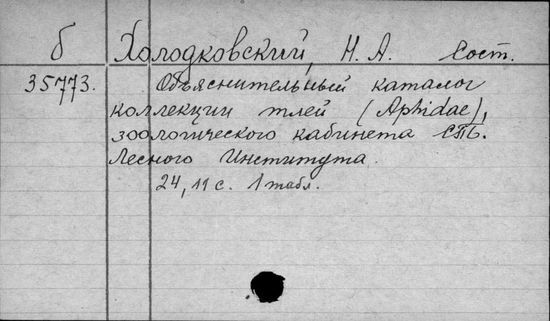 б Холодковский, Н. А. Сост.
35773. Объяснительный каталог
коллекции тлей (Aphidae),
зоологического кабинета СПБ.
Лесного Института.
24, 11 с. 1 табл.